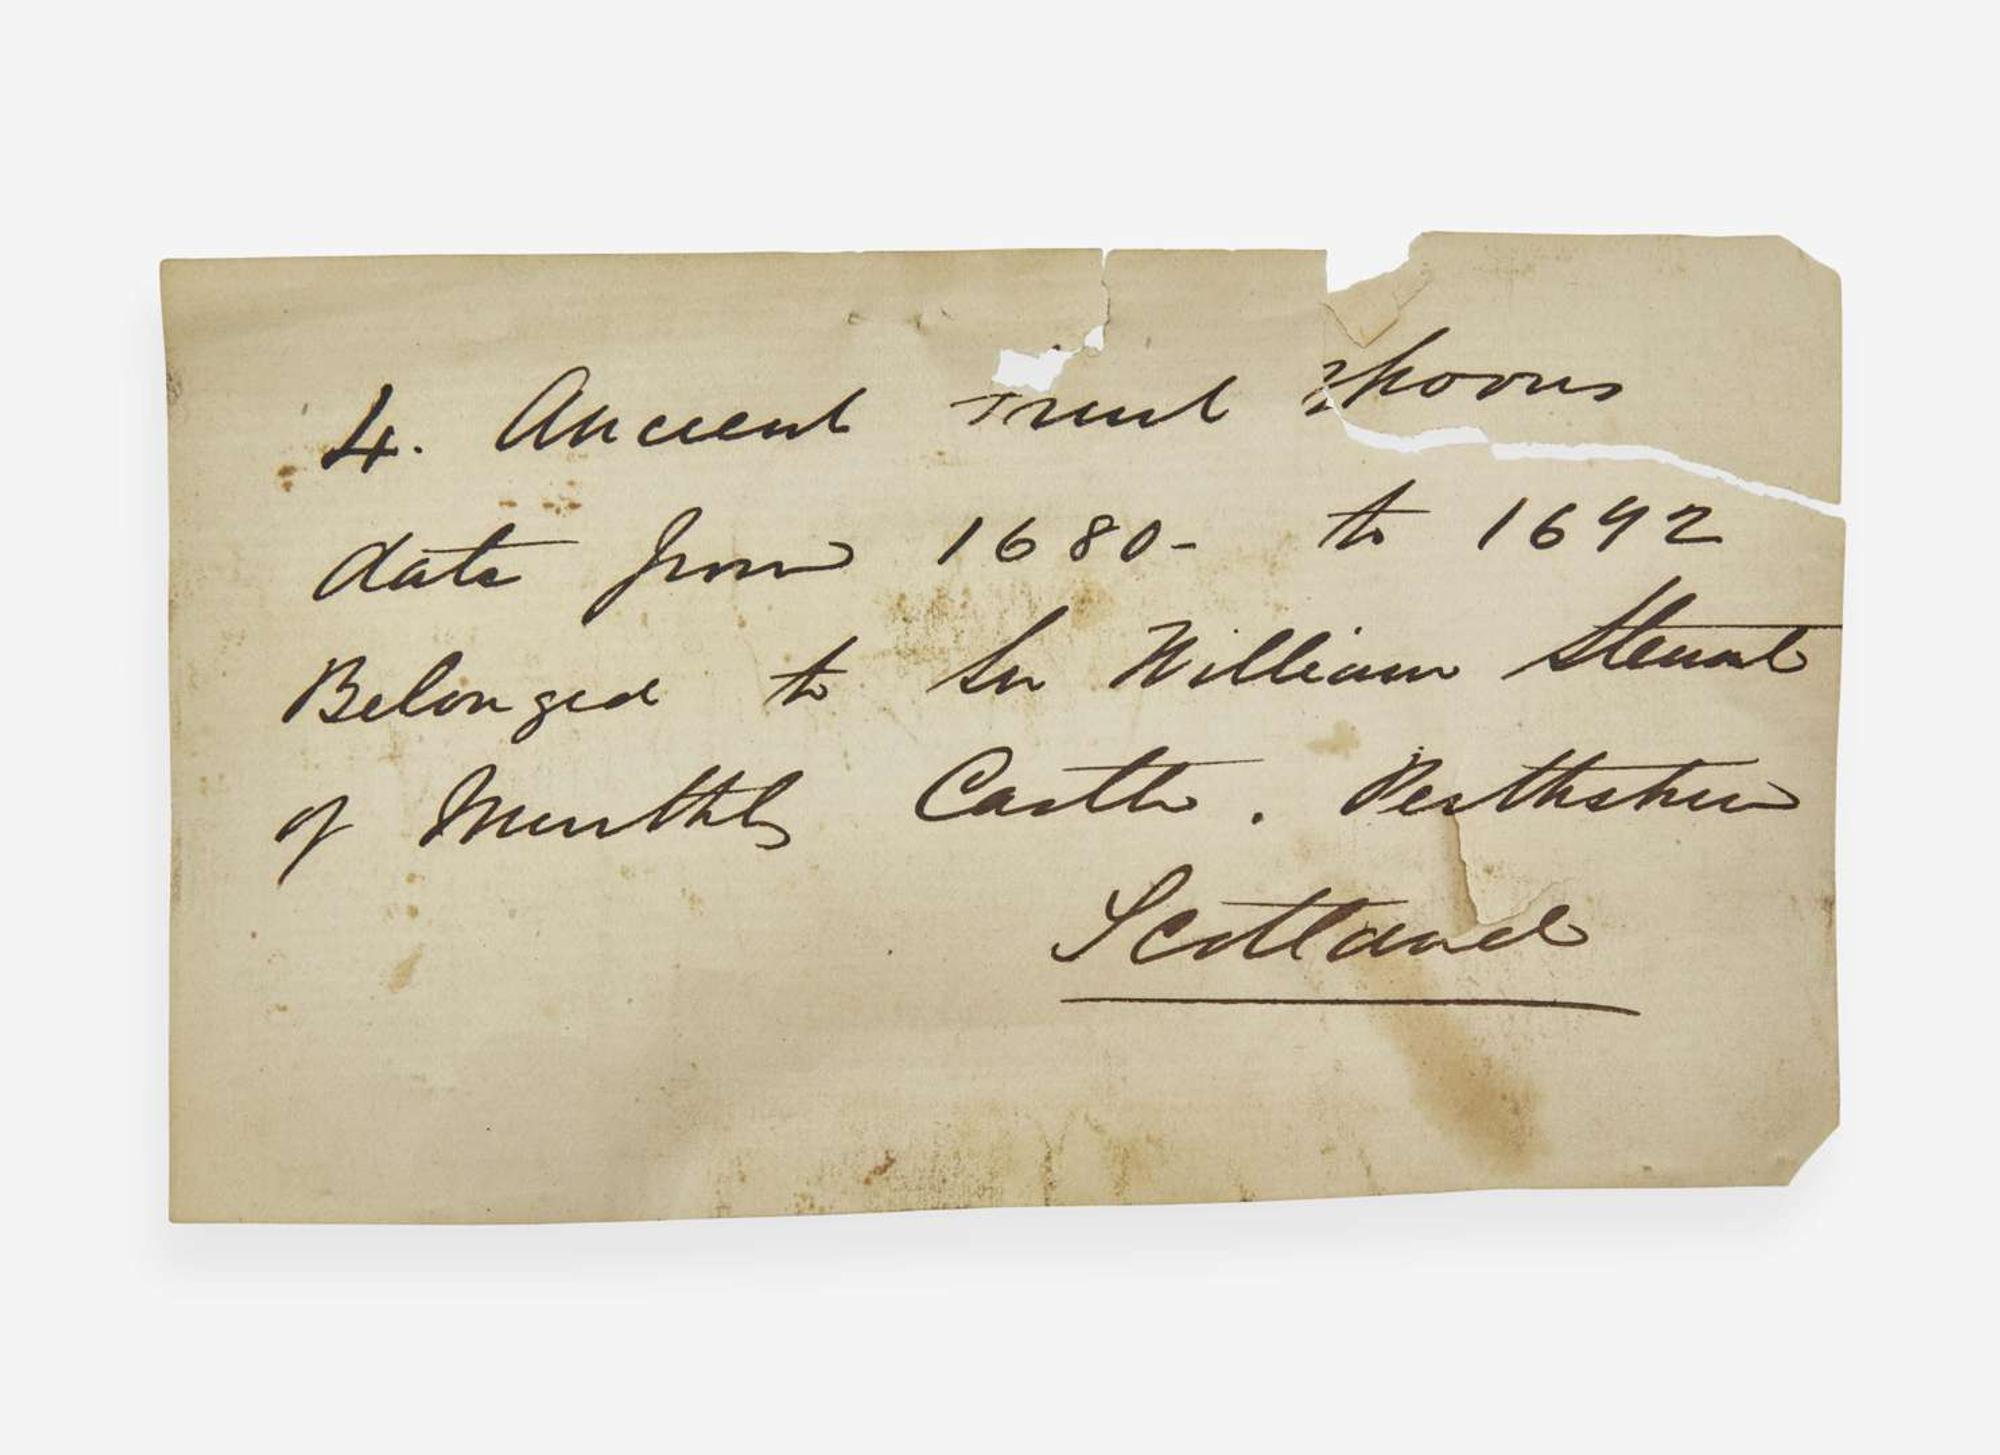 4. Ancient Fruit Spoons
date from 1680- to 1692
Belonged to Sir William Steuart
of Murthly Castle. Perthshire
Scotland